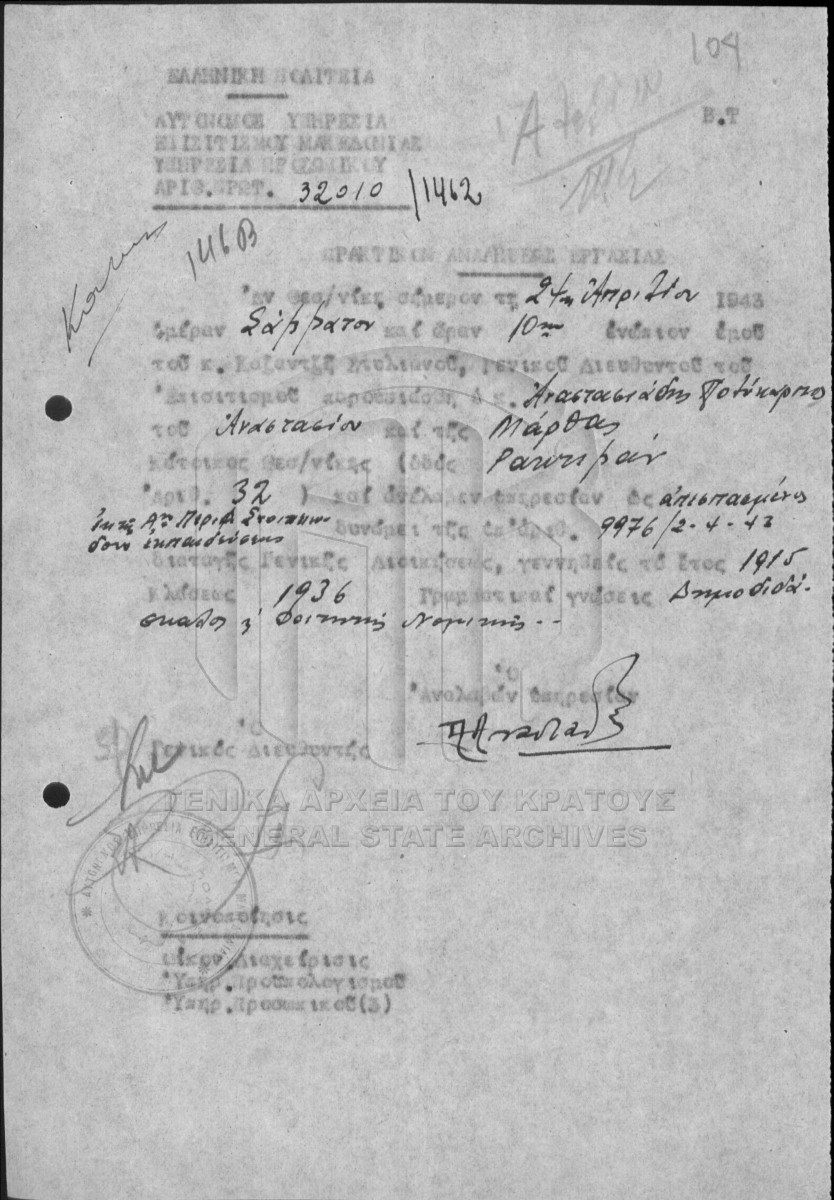 104
ΕΛΛΗΝΙΚΗ ΠΟΛΙΤΕΙΑ
ΑΥΤΟΝΟΜΟΣ ΥΠΗΡΕΣΙΑ
Β.Τ
ΕΠΙΣΙΤΙΣΜΟΥ ΜΑΚΕΔΟΝΙΑΣ
ΥΠΗΡΕΣΙΑ ΠΡΟΣΩΠΙΚΟΥ
ΑΡΙΘ.ΠΡΩΤ. 32010/1462
146B
ΠΡΑΚΤΙΚΟΝ ΑΝΑΛΗΨΕΩΣ ΕΡΓΑΣΙΑΣ
Ἐν Θεσ/νίκῃ σήμερον τῇ 24ῃ Ἀπριλίου 1943
ἡμέραν Σάββατον καί ὥραν 10ην ἐνώπιον ἐμοῦ
τοῦ κ. Καζαντζῆ Στυλιανοῦ, Γενικοῦ Διευθυντοῦ τοῦ
Ἐπισιτισμοῦ παρουσιάσθη ὁ κ. Ἀναστασιάδης Πολύκαρπος
τοῦ Ἀναστασίου καί τῆς Μάρθας
Κάτοικος Θεσ/νίκης (ὁδός
Ἀριθ. 32 ) καί ἀνέλαβεν ὑπηρεσίαν ὡς ἀπεσπασμένος
ἐκ τῆς Αης Περιφ. Στοιχειώ
δους ἐκπαιδεύσεως δυνάμει τῆς ὑπ'ἀριθ. 9976/2-4-43
διαταγῆς Γενικῆς Διοικήσεως, γεννηθείς τό ἔτος 1915
Κλάσεως 1936 Γραμματικαί γνώσεις Δημοδιδά-
σκαλος & Φοιτητής Νομικῆς --
Ὁ
Ἀναλαβών ὑπηρεσίαν
Ὁ
Γενικός Διευθυντής
ΓΕΝΙΚΑ ΑΡΧΕΙΑ ΤΟΥ ΚΡΑΤΟΥΣ
GENERAL STATE ARCHIVES
Κοινοποίησις
Οἰκον.Διαχείρισις
Ὑπηρ.Προϋπολογισμοῦ
Ὑπηρ.Προσωπικοῦ(3)